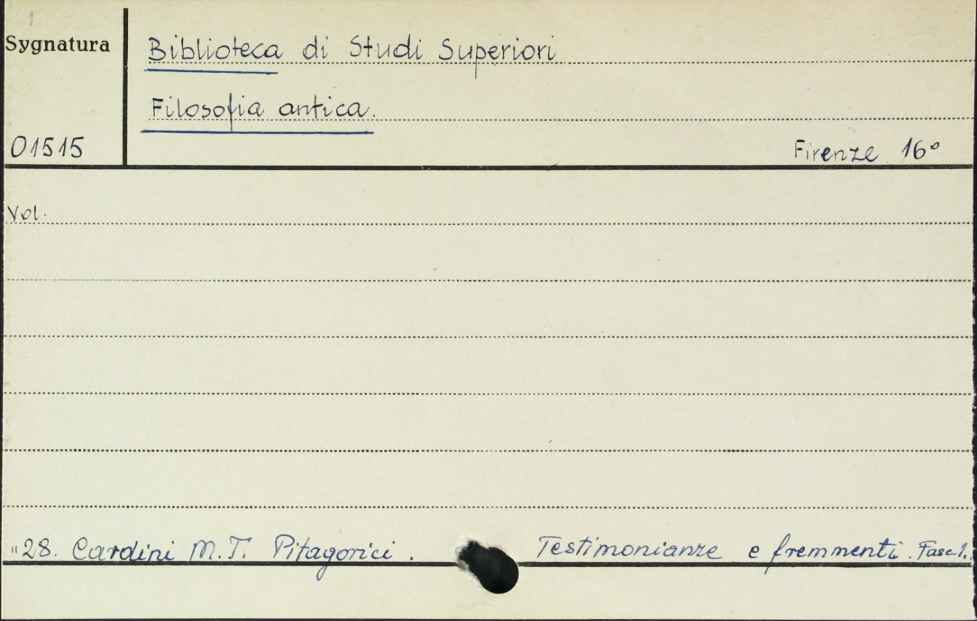 Sygnatura
Biblioteca di Studi Superiori
Filosofia antica.
01515
Firenze 16°
Vol.
"28. Cardini M.T. Pitagorici. Testimonianze e fremmenti. Fasc 1.